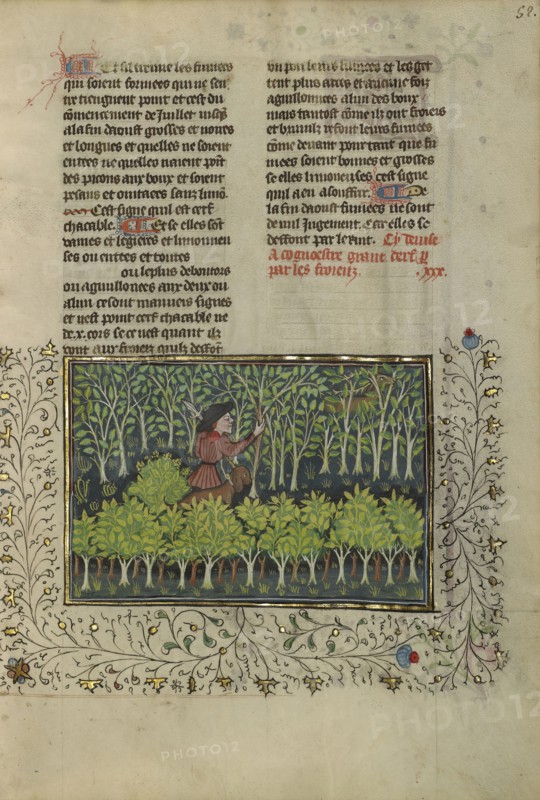 52.
Et sil treuue les fumees
qui soient formees qui ne sen
tre tiengnent point et cest du
cōmencement de Juillet iusq̄s
a la fin daoust grosses et noires
et longues et quelles ne soient
entees ne quelles naient poīt
des picons aux boux et soient
pesans et ointaces sanz limō.
Cest signe quil est cerf
chacable. Et se elles sōt
vaines et legieres et limonneu
ses ou entees et toutes
ou le plus deboutois
ou aguillonees aux deux ou
a lun ce sont mauuais signes
et nest point cerf chacable ne
de .x. cors se ce nest quant ilz
vont aux froiez quilz deffont
tent plus arees et aucune foiz
aguillonnees a lun des boux
mais tantost cōme ilz ont froies
et brunilz refont leurs fumees
cōme deuant pour tant que fu
mees soient bonnes et grosses
se elles limoneuses cest signe
quil a eu a souffrir. De
la fin daoust fumees ne sont
de nul Jugement. Car elles se
deffont par le ruit. Cy deuise
A cognoestre grant cerf
par les froiez. .xxx.
PHOTO12